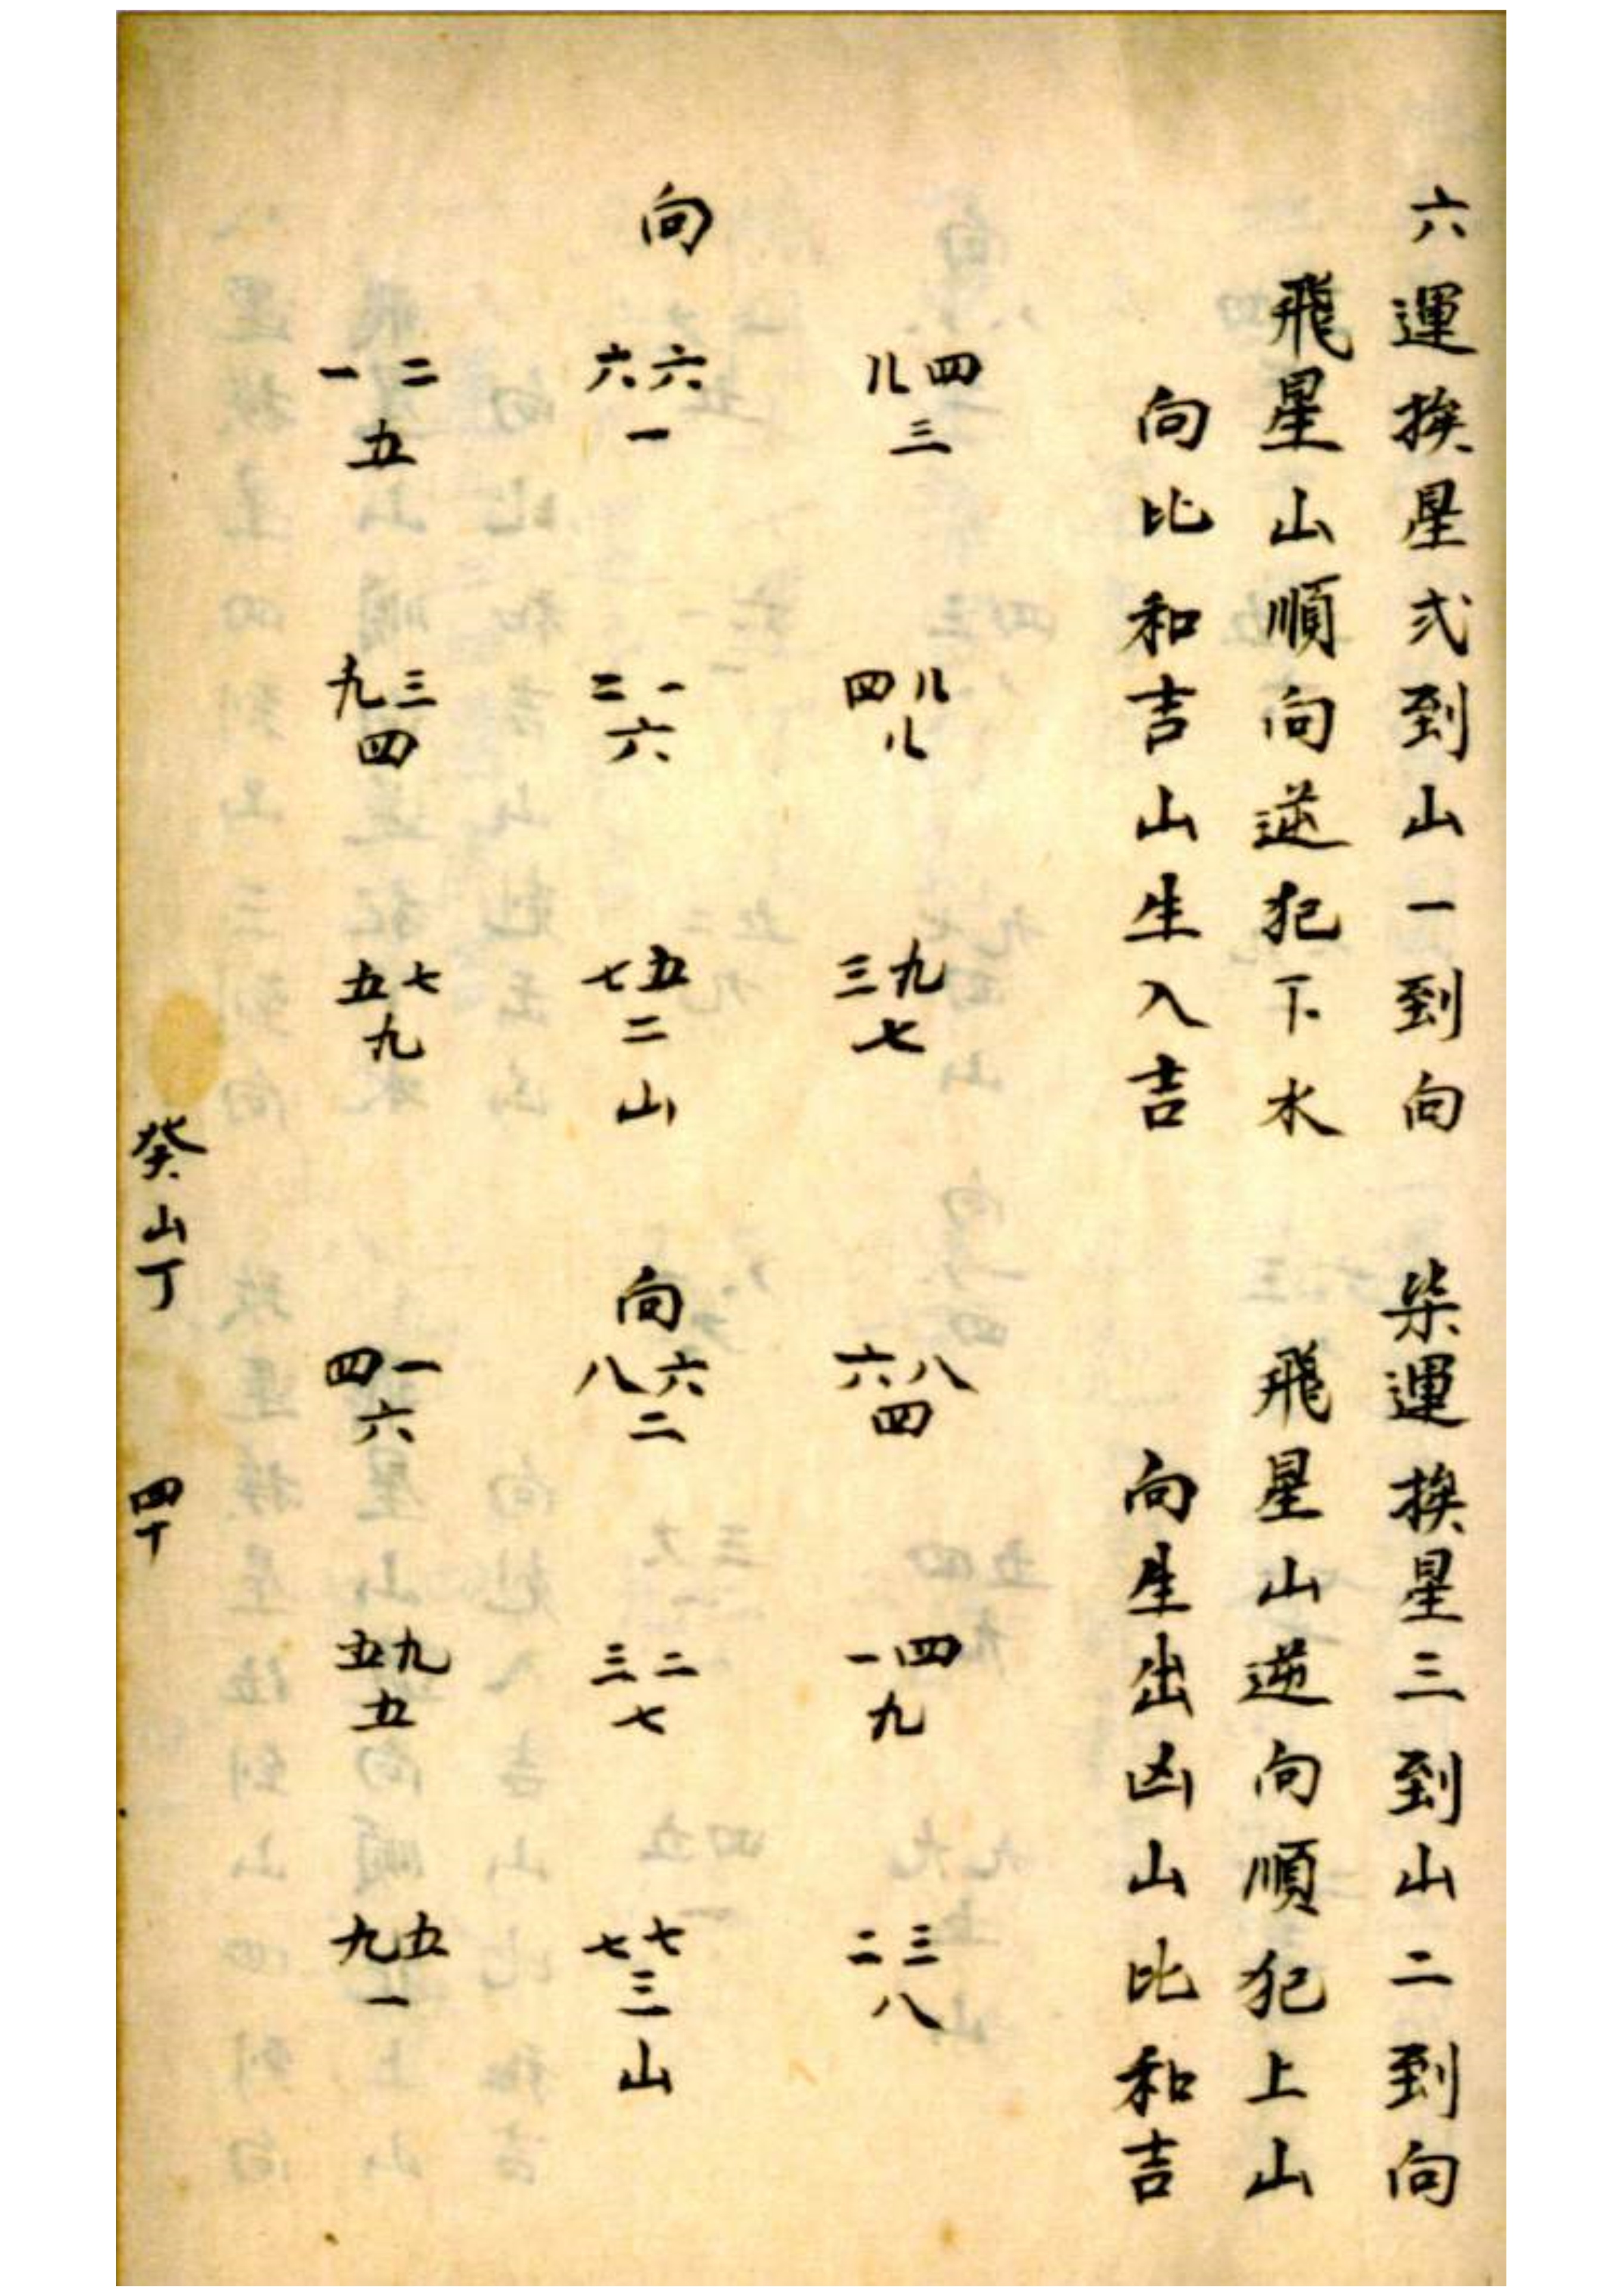 六運挨星弍到山一到向
飛星山順向逆犯下水
向比和吉山生入吉
向
八四
三
六六
一
一二
五
四八
八
二一
六
九三
四
三九
七
七五
二
山
五七
九
柒運挨星三到山二到向
飛星山逆向順犯上山
向生出凶山比和吉
向
六八
四
八六
二
四一
六
一四
九
三二
七
五九
五
二三
八
七七
三
山
九五
一
癸山丁
四十